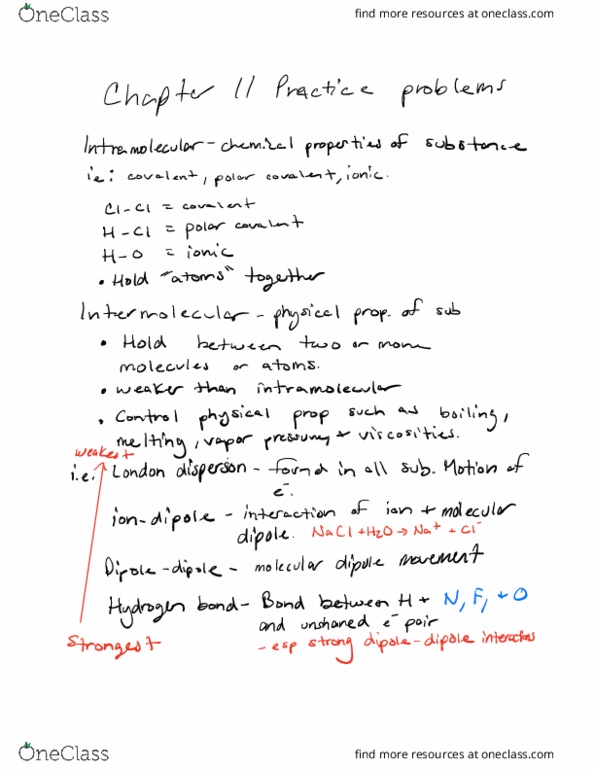 OneClass find more resources at oneclass.com
Chapter 11 Practice problems
Intramolecular - chemical properties of substance
ie: covalent, polar covalent, ionic.
Cl-Cl = covalent
H-Cl = polar covalent
H-O = ionic
• Hold "atoms" together
Intermolecular - physical prop. of sub
• Hold between two or more
molecules or atoms.
• weaker than intramolecular
• Control physical prop such as boiling,
melting, vapor pressure, + viscosities.
weakest
i.e. London dispersion - found in all sub. Motion of
e⁻.
ion-dipole - interaction of ion + molecular
dipole. NaCl + H2O → Na⁺ + Cl⁻
Dipole-dipole - molecular dipole movement
Hydrogen bond - Bond between H + N, F, + O
and unshared e⁻ pair
Strongest - esp strong dipole-dipole interactions
OneClass find more resources at oneclass.com